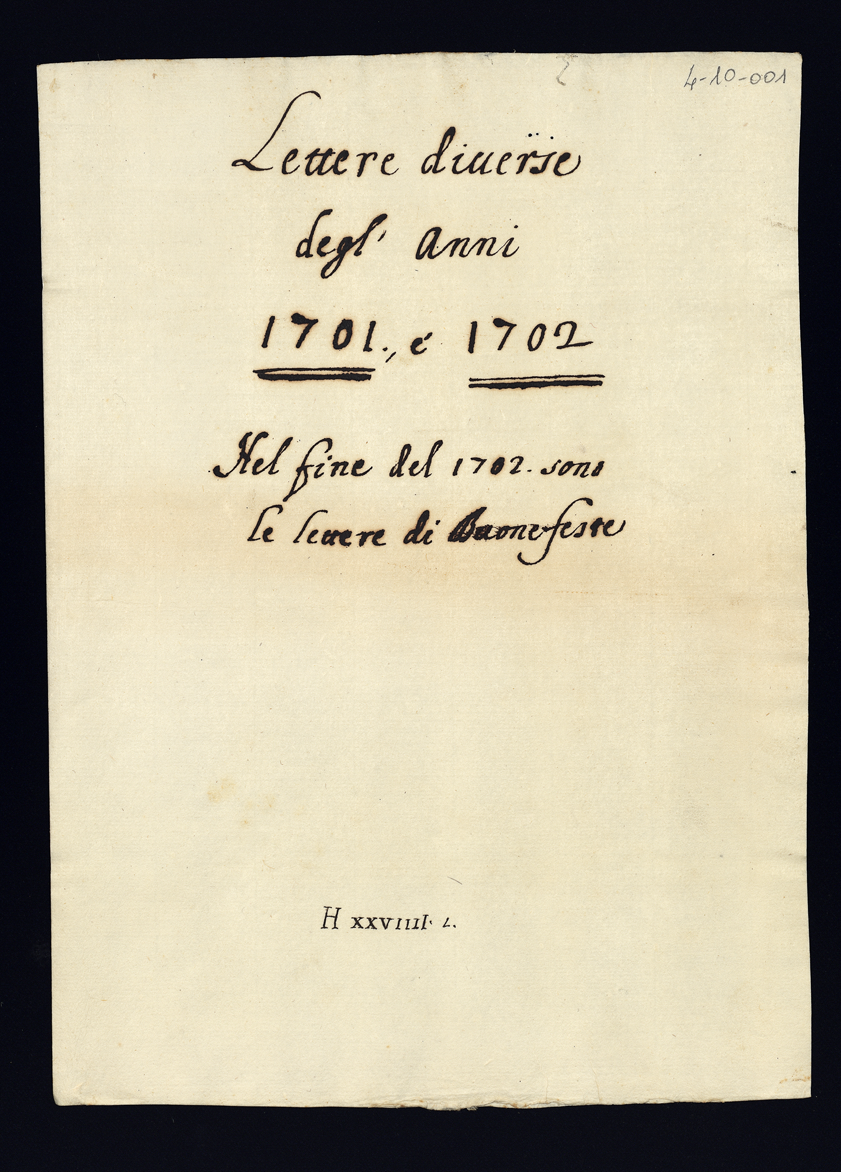 4-10-001
Lettere diuerse
degl' Anni
1701., é 1702
Nel fine del 1702. sono
le lettere di Buone feste
H XXVIIII. L.